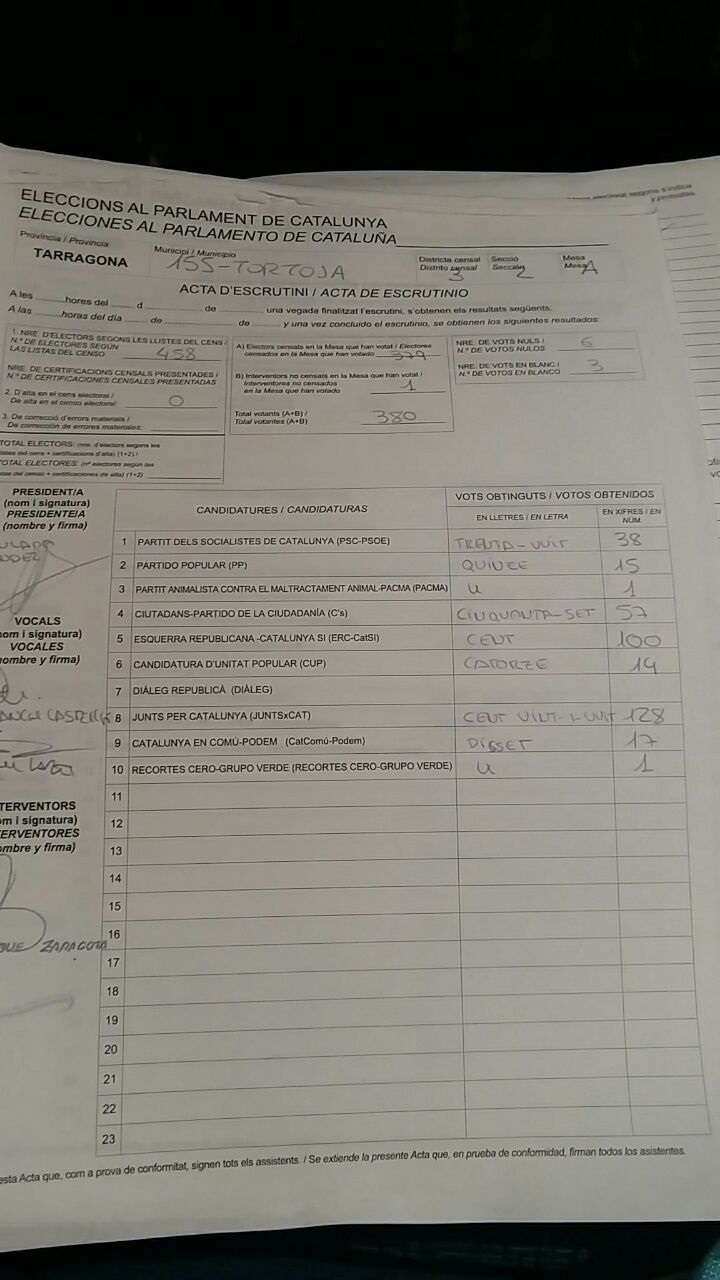 ELECCIONS AL PARLAMENT DE CATALUNYA
ELECCIONES AL PARLAMENTO DE CATALUÑA
Província / Provincia
TARRAGONA
Municipi / Municipio
155-TORTOJA
Districte censal
Distrito censal
3
Secció
Sección
2
Mesa
Mesa A
ACTA D'ESCRUTINI / ACTA DE ESCRUTINIO
A les ........ hores del ........ d ........ de ........, una vegada finalitzat l'escrutini, s'obtenen els resultats següents:
A las ........ horas del día ........ de ........ de ........ y una vez concluido el escrutinio, se obtienen los siguientes resultados:
1. NRE. D'ELECTORS SEGONS LES LLISTES DEL CENS /
N.º DE ELECTORES SEGÚN
LAS LISTAS DEL CENSO 458
NRE. DE CERTIFICACIONS CENSALS PRESENTADES /
N.º DE CERTIFICACIONES CENSALES PRESENTADAS
2. D'alta en el cens electoral /
De alta en el censo electoral: 0
3. De correcció d'errors materials /
De corrección de errores materiales:
TOTAL ELECTORS: (nre. d'electors segons les
llistes del cens + certificacions d'alta) (1+2) /
TOTAL ELECTORES: (nº electores según las
listas del censo + certificaciones de alta) (1+2)
A) Electors censats en la Mesa que han votat / Electores
censados en la Mesa que han votado 379
B) Interventors no censats en la Mesa que han votat /
Interventores no censados
en la Mesa que han votado 1
Total votants (A+B) /
Total votantes (A+B) 380
NRE. DE VOTS NULS /
N.º DE VOTOS NULOS 6
NRE. DE VOTS EN BLANC /
N.º DE VOTOS EN BLANCO 3
PRESIDENT/A
(nom i signatura)
PRESIDENTE/A
(nombre y firma)
VOCALS
nom i signatura)
VOCALES
nombre y firma)
TERVENTORS
om i signatura)
ERVENTORES
ombre y firma)
ZARAGOZA
CANDIDATURES / CANDIDATURAS
VOTS OBTINGUTS / VOTOS OBTENIDOS
EN LLETRES / EN LETRA
EN XIFRES / EN NÚM.
1 PARTIT DELS SOCIALISTES DE CATALUNYA (PSC-PSOE) TRENTA-VUIT 38
2 PARTIDO POPULAR (PP) QUINZE 15
3 PARTIT ANIMALISTA CONTRA EL MALTRACTAMENT ANIMAL-PACMA (PACMA) U 1
4 CIUTADANS-PARTIDO DE LA CIUDADANÍA (C's) CINQUANTA-SET 57
5 ESQUERRA REPUBLICANA -CATALUNYA SI (ERC-CatSI) CENT 100
6 CANDIDATURA D'UNITAT POPULAR (CUP) CATORZE 14
7 DIÀLEG REPUBLICÀ (DIÀLEG)
8 JUNTS PER CATALUNYA (JUNTSxCAT) CENT VINT-I-VUIT 128
9 CATALUNYA EN COMÚ-PODEM (CatComú-Podem) DISSET 17
10 RECORTES CERO-GRUPO VERDE (RECORTES CERO-GRUPO VERDE) U 1
11
12
13
14
15
16
17
18
19
20
21
22
23
esta Acta que, com a prova de conformitat, signen tots els assistents. / Se extiende la presente Acta que, en prueba de conformidad, firman todos los asistentes.